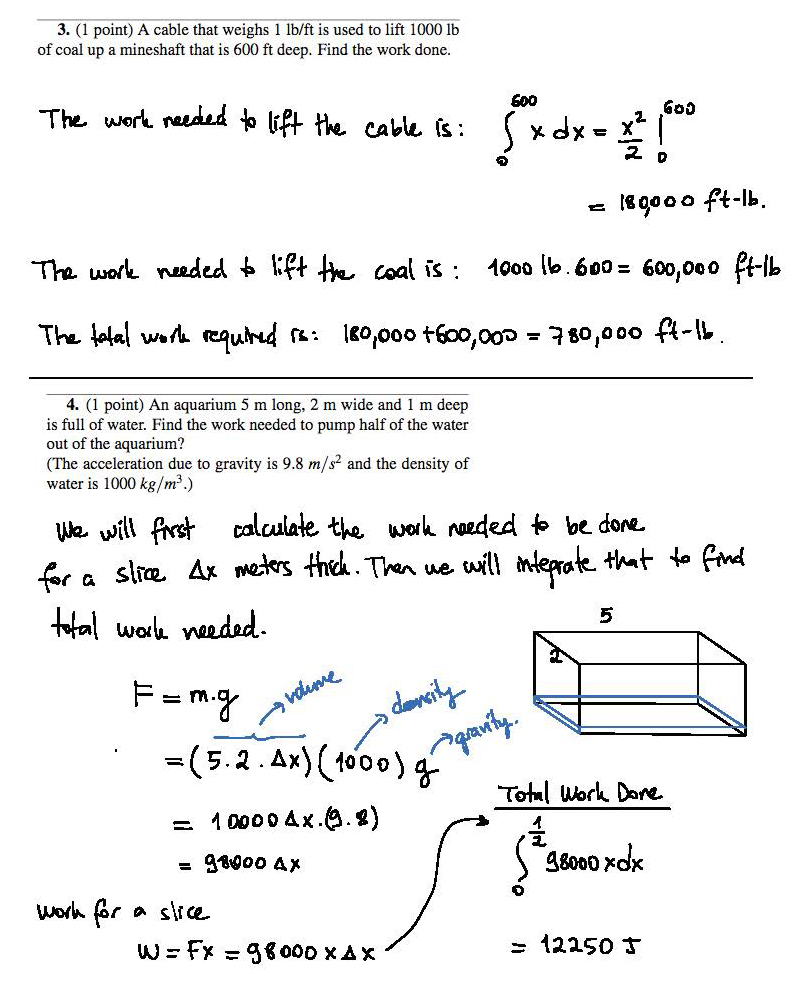 3. (1 point) A cable that weighs 1 lb/ft is used to lift 1000 lb
of coal up a mineshaft that is 600 ft deep. Find the work done.
The work needed to lift the cable is: ∫₀⁶⁰⁰ x dx = x²/2 |₀⁶⁰⁰
= 180,000 ft-lb.
The work needed to lift the coal is: 1000 lb . 600 = 600,000 ft-lb
The total work required is: 180,000 + 600,000 = 780,000 ft-lb.
4. (1 point) An aquarium 5 m long, 2 m wide and 1 m deep
is full of water. Find the work needed to pump half of the water
out of the aquarium?
(The acceleration due to gravity is 9.8 m/s² and the density of
water is 1000 kg/m³.)
We will first calculate the work needed to be done
for a slice Δx meters thick. Then we will integrate that to find
total work needed.
5
2
F = m.g
volume
density
gravity.
= (5.2.Δx)(1000) g
= 10000 Δx.(9.8)
= 98000 Δx
work for a slice
W = Fx = 98000 x Δx
Total Work Done
∫₀^(1/2) 98000 x dx
= 12250 J